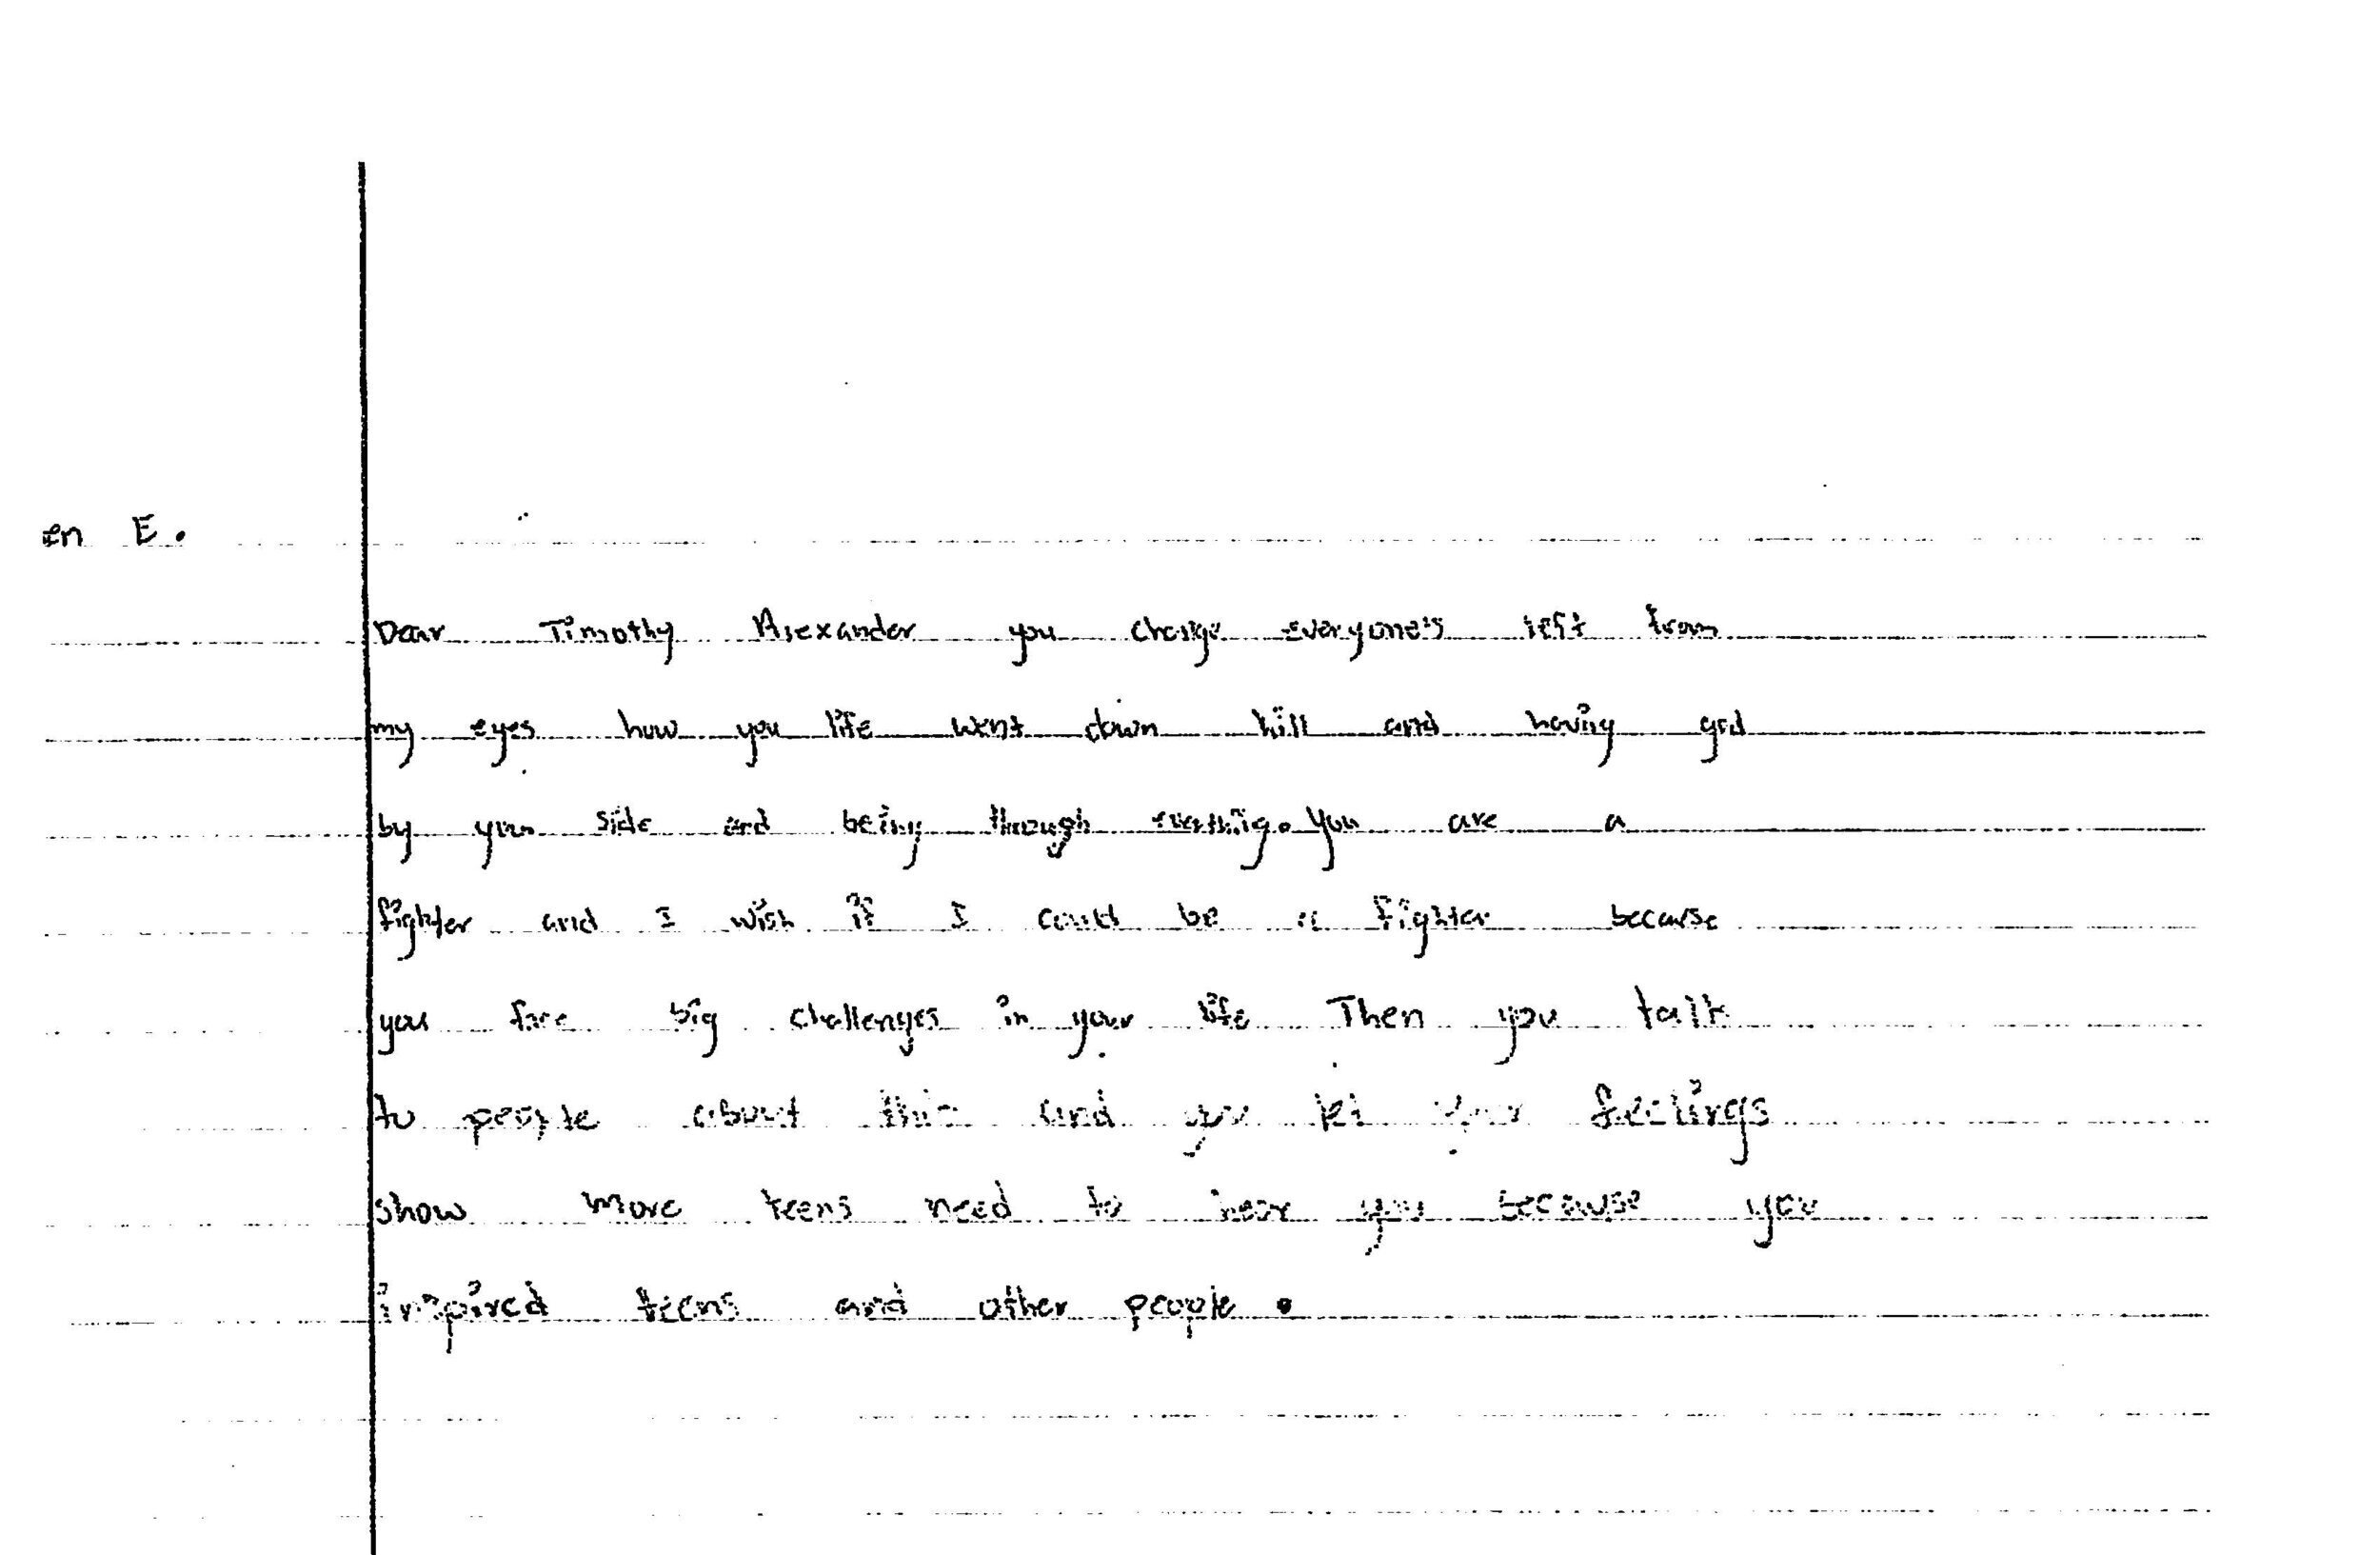 en E.
Dear Timothy Alexander you change everyone's left from
my eyes how you life went down hill and having god
by your side and being through everthing. You are a
fighter and I wish if I could be a fighter because
you face big challenges in your life Then you talk
to people about this and you let your feelings
show more teens need to hear you because you
inspired teens and other people.